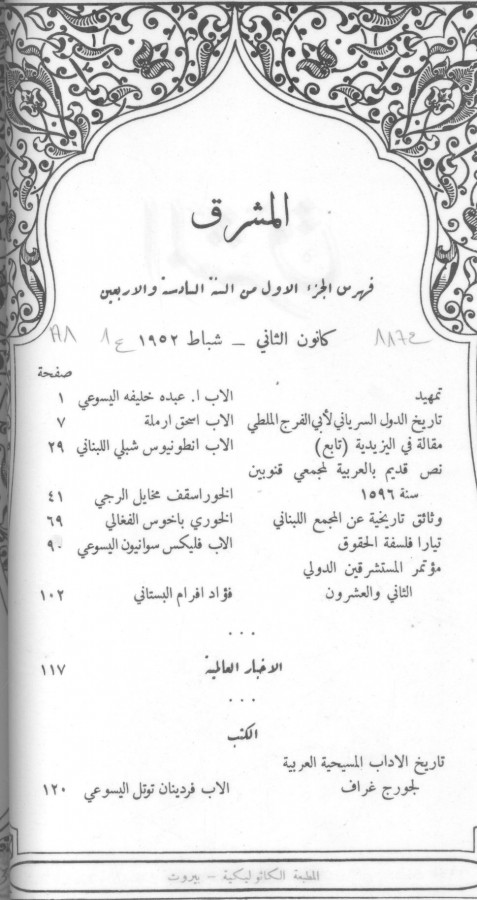 المشرق
فهرس الجزء الاول من السنة السادسة والاربعين
كانون الثاني – شباط ١٩٥٢
صفحة
تمهيد الاب ا. عبده خليفه اليسوعي ١
تاريخ الدول السرياني لأبي الفرج الملطي الاب اسحق ارملة ٧
مقالة في اليزيدية (تابع) الاب انطونيوس شبلي اللبناني ٢٩
نص قديم بالعربية لمجمعي قنوبين
سنة ١٥٩٦ الخوراسقف مخايل الرجي ٤١
وثائق تاريخية عن المجمع اللبناني الخوري باخوس الفغالي ٦٩
تيارا فلسفة الحقوق الاب فليكس سوانيون اليسوعي ٩٠
مؤتمر المستشرقين الدولي
الثاني والعشرون فؤاد افرام البستاني ١٠٢
...
الاخبار العالمية ١١٧
...
الكتب
تاريخ الاداب المسيحية العربية
لجورج غراف الاب فردينان توتل اليسوعي ١٢٠
المطبعة الكاثوليكية – بيروت